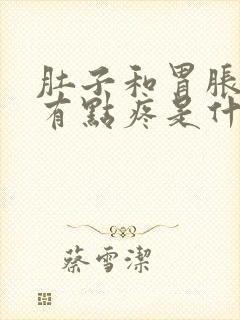 肚子和胃脹
有點疼是什
蔡雪潔